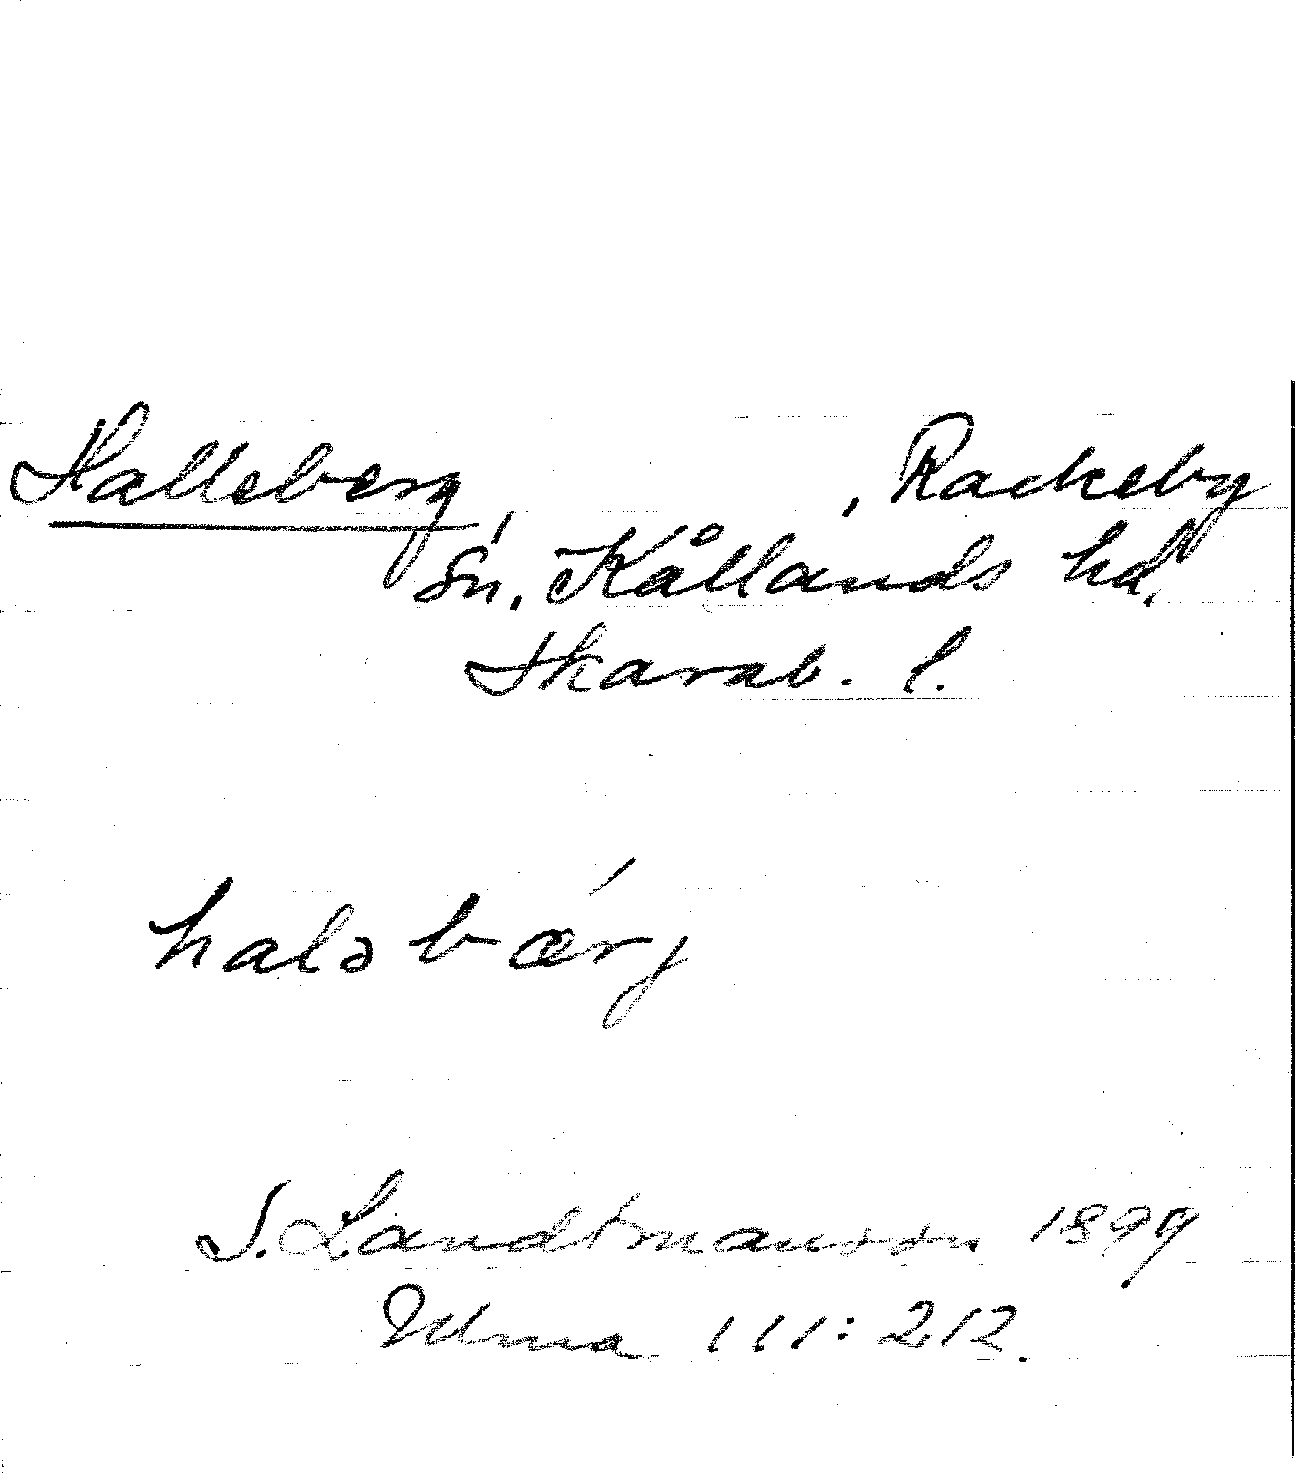 Halleberg, , Rackeby
Sn. Kållands hd.
Skarab. l.
haləbærj
S. Landtmanson 1899
Ulma 111:212.